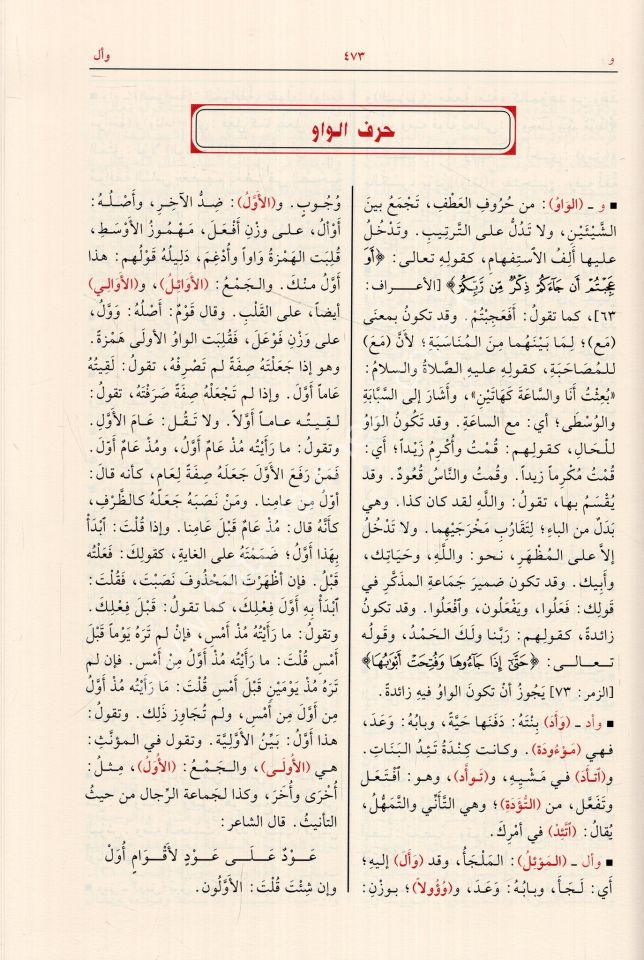 و ٤٧٣ وأل
حرف الواو
■ و ـ (الوَاوُ): من حُرُوفِ العَطْفِ، تَجْمَعُ بينَ
الشَّيْئَيْنِ، ولا تَدُلُّ على التَّرتِيبِ. وتَدْخُلُ
عليها أَلِفُ الاسْتِفهامِ، كقولِهِ تعالى: ﴿أَوَ
عَجِبْتُمْ أَن جَاءَكُمْ ذِكْرٌ مِّن رَّبِّكُمْ﴾ [الأعراف:
٦٣]، كما تقولُ: أَفَعَجِبْتُمْ. وقد تكونُ بمعنَى
(مَع)؛ لِمَا بَيْنَهُما مِنَ المُنَاسَبَةِ؛ لأَنَّ (مَعَ)
لِلْمُصَاحَبَةِ، كقولِهِ عليهِ الصَّلاةُ والسلامُ:
«بُعِثْتُ أَنَا والسَّاعَةَ كَهَاتَيْنِ»، وأَشَارَ إلى السَّبَّابَةِ
والوُسْطَى؛ أي: مع الساعَةِ. وقد تَكُونُ الوَاوُ
لِلْحَالِ، كقولِهم: قُمْتُ وأُكْرِمُ زَيْداً؛ أي:
قُمْتُ مُكْرِماً زيداً. وقُمْتُ والنَّاسُ قُعُودٌ. وقد
يُقْسَمُ بها، تقولُ: واللَّهِ لقد كان كذا. وهي
بَدَلٌ من الباءِ؛ لِتَقارُبِ مَخْرَجَيْهِما. ولا تَدْخُلُ
إلاَّ على المُظْهَرِ، نحو: واللَّهِ، وحَيَاتِك،
وأَبيك. وقد تكون ضميرَ جَمَاعةِ المذكَّرِ في
قَولِك: فَعَلُوا، ويَفْعَلُون، وأفْعَلُوا. وقد تكونُ
زائدةً، كقولِهم: رَبَّنا ولَكَ الحَمْدُ، وقَولُه
تعالى: ﴿حَتَّىٰ إِذَا جَاءُوهَا وَفُتِحَتْ أَبْوَابُهَا﴾
[الزمر: ٧٣] يَجُوزُ أنْ تكونَ الواوُ فيهِ زائدةً.
■ وأد ـ (وَأَدَ) بِنْتَهُ: دَفَنَها حَيَّةً، وبابُهُ: وَعَدَ،
فهي (مَوْءُودَة). وكانت كِنْدَةُ تَئِدُ البَنَاتِ.
و(اتَّأَدَ) في مَشْيِهِ، و(تَوأَّد)، وهو: افْتَعَل
وتَفَعَّل، من (التُّؤَدَة)؛ وهي التَّأَنِّي والتَّمَهُّل،
يُقالُ: (اتَّئِدْ) في أمْرِكَ.
■ وأل ـ (المَوْئِلُ): المَلْجَأُ، وقد (وَأَلَ) إليهِ؛
أي: لَجَأَ، وبابُهُ: وَعَدَ، و(وُؤُولاً)؛ بوزنِ:
وُجُوبٍ. و(الأَوَّلُ): ضِدُّ الآخِرِ، وأَصْلُهُ:
أَوْأَلُ، على وزْنِ أَفْعَلَ، مَهْمُوزُ الأَوْسَطِ،
قُلِبَت الهَمْزَةُ وَاواً وأُدْغِمَ، دَلِيلُهُ قَوْلُهم: هذا
أَوَّلُ منك. والجَمْعُ: (الأَوَائِلُ)، و(الأَوَالِي)
أيضاً، على القَلْبِ. وقال قَوْمٌ: أَصْلُهُ: وَوَّلُ،
على وَزْنِ فَوْعَلَ، فقُلِبَت الواوُ الأولَى هَمْزَةً.
وهو إذا جَعَلْتَهُ صِفَةً لم تَصْرِفْهُ، تقولُ: لَقِيتُهُ
عَاماً أَوَّلَ. وإذا لم تَجْعَلْهُ صِفَةً صَرَفْتَهُ، تقولُ:
لَقِيتُه عاماً أَوَّلاً. ولا تَقُلْ: عَامَ الأَوَّلِ.
وتقولُ: ما رَأَيْتُه مُذْ عَامٌ أَوَّلُ، ومُذْ عَامٌ أَوَّلَ.
فمَنْ رَفَعَ الأَوَّلَ جَعَلَهُ صِفَةً لِعَام، كأنه قالَ:
أوَّلُ من عامِنا. ومَنْ نَصَبَهُ جَعَلَهُ كالظَّرْفِ،
كأنَّهُ قال: مُذْ عَامٌ قَبْلَ عَامِنا. وإذا قُلْتَ: ابْدَأْ
بِهَذا أَوَّلُ؛ ضَمَمْتَهُ على الغايَةِ، كقولِكَ: فَعَلْتُه
قَبْلُ. فإن أظْهَرْتَ المَحْذُوفَ نَصَبْتَ، فَقُلْتَ:
ابْدَأْ بِهِ أَوَّلَ فِعْلِكَ، كما تقولُ: قَبْلَ فِعْلِكَ.
وتقولُ: ما رَأَيْتُهُ مُذْ أَمسِ، فإنْ لم تَرَهُ يَوْماً قَبْلَ
أَمسِ قُلْتَ: ما رَأَيْتُه مُذْ أَوَّلُ مِنْ أَمْسِ. فإن لم
تَرَهُ مُذْ يَوْمَيْنِ قَبْلَ أَمْسِ قُلْتَ: مَا رَأَيْتُه مُذْ أَوَّلَ
مِن أَوَّلَ مِن أَمْسِ، ولم تُجَاوِز ذلِك. وتقولُ:
هذا أَوَّلُ: بَيِّنُ الأَوَّلِيَّةِ. وتقول في المؤنَّثِ:
هي (الأُولَى)، والجَمْعُ: (الأُوَلُ)، مِثلُ:
أُخْرَى وأُخَرَ، وكذا لجَماعةِ الرِّجالِ من حيثُ
التأنيثُ. قال الشاعر:
عَوْدٌ عَلَى عَوْدٍ لأَقْوَامٍ أُوَلْ
وإن شِئْتَ قُلْتَ: الأَوَّلُون.